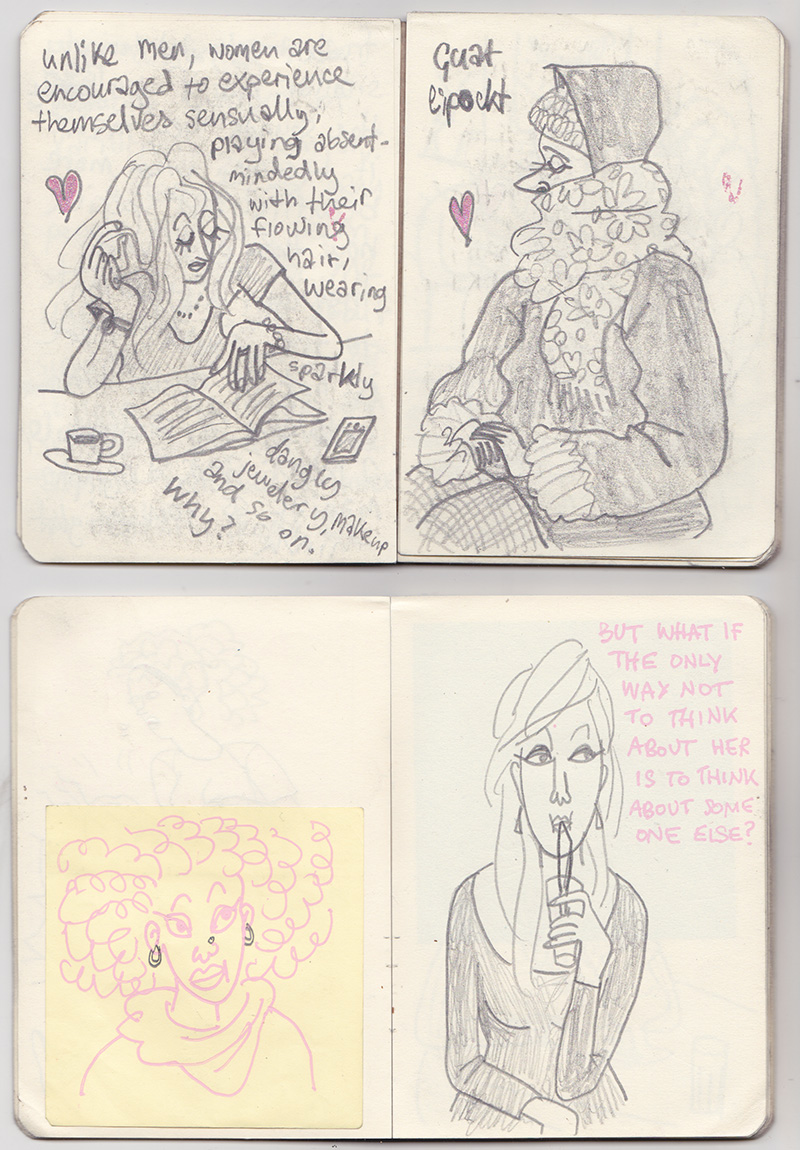 unlike men, women are
encouraged to experience
themselves sensually,
playing absent-
mindedly
with their
flowing
hair,
wearing
sparkly
dangly
jewelery, makeup
and so on.
Why?
Guat
eipackt
BUT WHAT IF
THE ONLY
WAY NOT
TO THINK
ABOUT HER
IS TO THINK
ABOUT SOME
ONE ELSE?